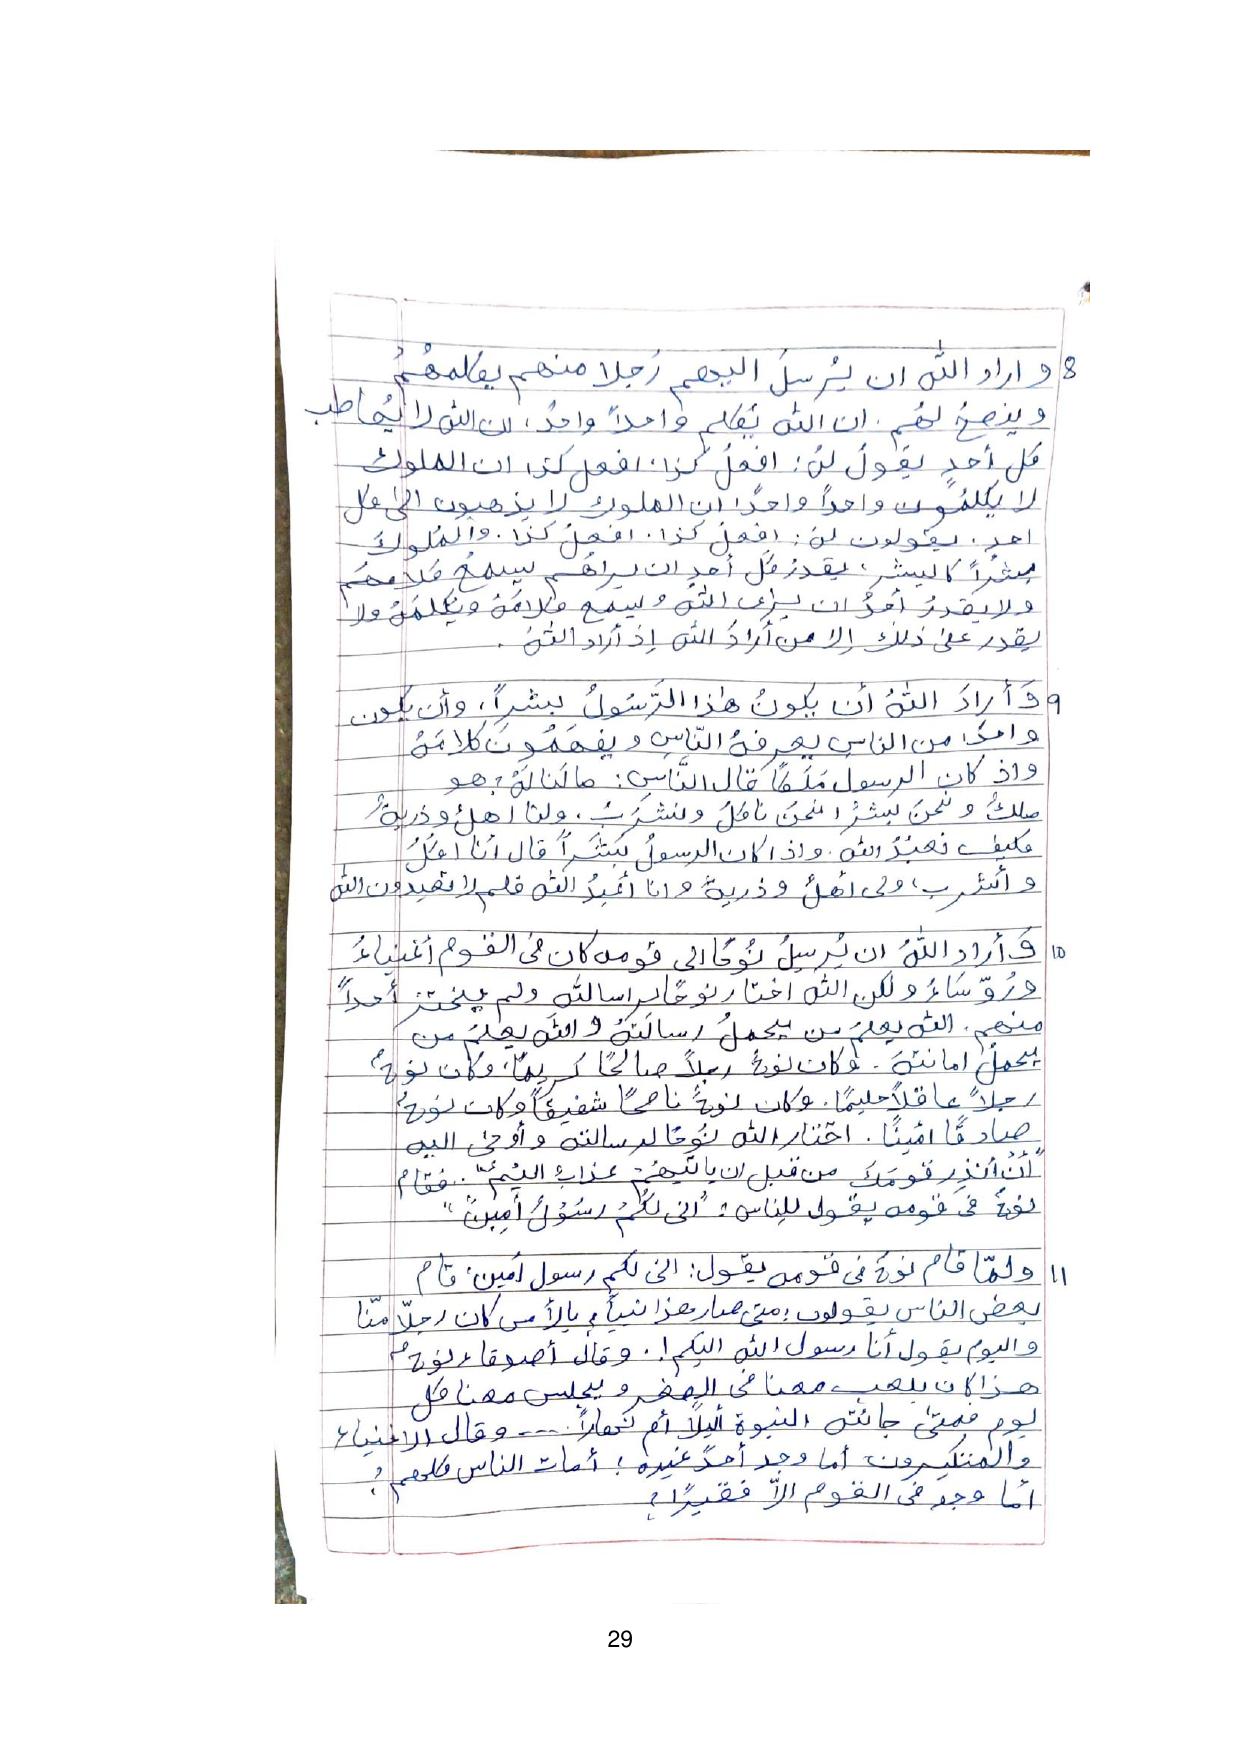 8 و اراد اللّٰه ان يُرسلَ اليهم رَجلا منهم يكلمهُمُ
و ينصحُ لهُم. ان اللّٰه يُكلم واحداً واحدُ، ان اللّٰه لا يُخاطب
كل أحدٍ يقولُ لهُ: افعلْ كذا، افعل كذا ان الملوك
لا يكلمُون واحداً واحدًا، ان الملوك لا يذهبون الى كل
احدٍ. يقولون لهُ: افعلْ كذا. افعلْ كذا. والمُلوكَ
بشرًا كالبشرِ، يقدرُ كُل أحدٍ ان يراهُم يسمعُ كلامهُم
ولا يقدرُ أحدُ ان يرٰى اللّٰه و يسمع كلامَهُ ويُكلمَهُ ولا
يقدر علىٰ ذلك إلا من أرادُ اللّٰه إذ أراد اللّٰهُ .
9 وَأرادَ اللّٰهُ أن يكونُ هٰذا الرَّسُولُ بشراً، وأن يكون
واحدًا من الناسِ يعرفهُ النّاسِ و يفهَمُونَ كلامَهُ
واذ كان الرسول مَلَكًا قال النَّاسِ: مالَنا لَهُ؟ هو
ملكُ و نحنَ بشرُ ! نحنَ نأكلُ ونشرَبُ، ولنا اهلُ وذريةُ
فكيف نعبُدُ اللّٰه. واذا كان الرسولُ بَشَراً قال أنا اٰكُلُ
وأشرب، ولى أهلُ وذريةُ وانا أعبدُ اللّٰه فلم لا تعبدون اللّٰه
10 وَأراد اللّٰهُ ان يُرسِلُ نُوحًا الى قومه كان فى القوم أغنياءُ
ورُؤسَاءُ ولكن اللّٰه اختار نوحًا لرسالته ولم يختر أحداً
منهم. اللّٰه يعلمَ من يحملُ رسالَتَهُ و اللّٰه يعلمَ من
يحملُ امانتهَ. وكان نوحُ رجلاً صالحًا كريمًا، وكان نوحُ
رجلاً عاقلاً حليمًا. وكان نوحُ ناصحًا شفيقًا وكان نوحُ
صادقًا امينًا. اختار اللّٰه نُوحًا لرسالته وأوحىٰ اليه
"أن أنذِر قومَكَ من قبل ان ياتيهُم عذاب اليمُ". فقام
نوحُ فى قومه يقول للناس: "انى لكُم رسُولُ أمين"
11 ولمّا قام نوحُ فى قومه يقول: انى لكم رسول أمين، قام
بعض الناس يقولون: متى صار هذا نبياً؟ بالأمس كان رجلاً منّا
واليوم يقول أنا رسول اللّٰه اليكم!. وقال أصدقاء نوحُ
هذا كان يلعب معنا فى الصغر و يجلس معنا كل
يوم فمتىٰ جائته النبوة أليلاً أم نهاراً.---- وقال الاغنياء
والمتكبرون أما وجد أحدً غيره؟ أمات الناس كلهم؟
أما وجد فى القوم الاّ فقيرًا؟
29